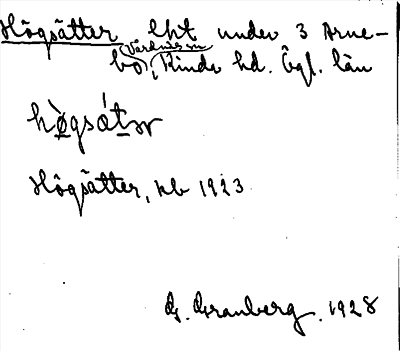 Högsätter lht under 3 Arne-
bo, (Värdnäs sn) Kinda hd. Ögl. län
hø̀gsátər
Högsätter, kb 1923
G. Granberg. 1928